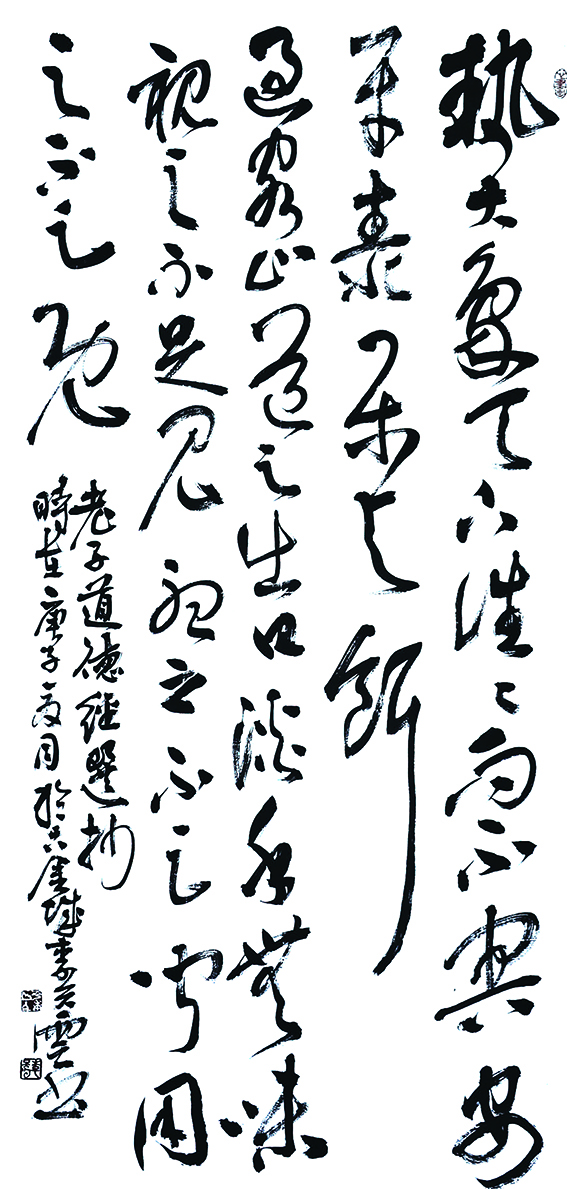 執大象天下往〻而不害安
平泰樂與餌
過客止道之出口淡乎無味
視之不足見聽之不足聞用
之不足既
老子道德經選抄
時在庚子夏月於古金城雲书